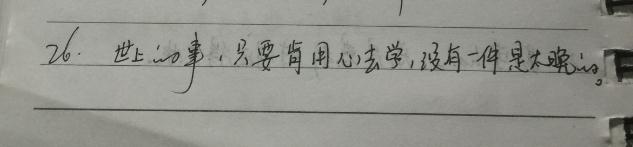 26. 世上的事，只要肯用心去学，没有一件是太晚的。